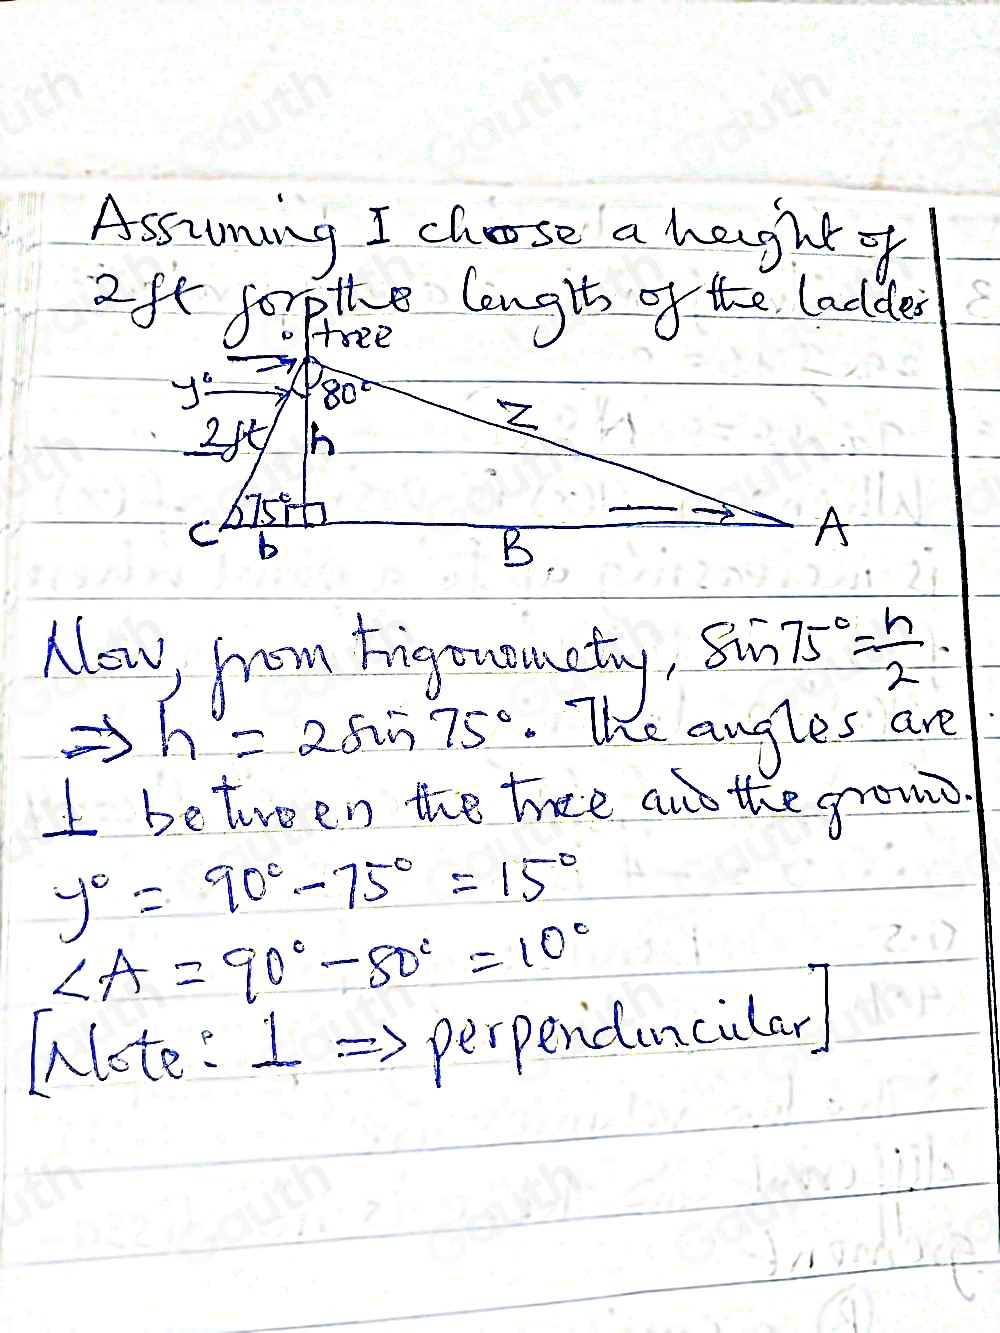 Assuming I choose a height of
2ft for the length of the ladder
tree
y°
80°
2ft
h
Z
C
75°
b
B
A
Now, from trigonometry, Sin75° = h/2.
⇒ h = 2sin75°. The angles are
⊥ between the tree and the ground.
y° = 90° - 75° = 15°
∠A = 90° - 80° = 10°
[Note: ⊥ ⇒ perpendincular]